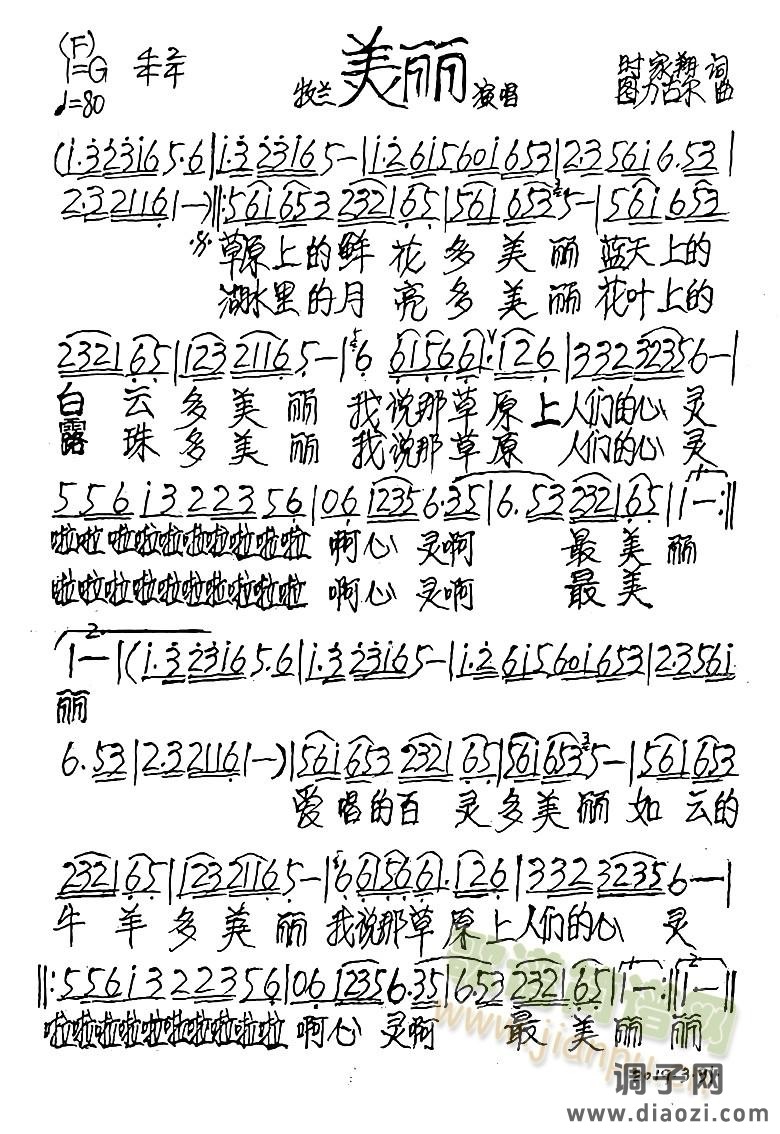 (F)
1=G 4/4 2/4
♩=80
美丽
牧兰 演唱
时家翔 词
图力古尔 曲
(1·3 23165·6|1·3 23165-|1·2 615601653|2·3561 6·53|
2·3 2116 1-)‖:561 653 2321 65|561 6535-|561 653
草原上的鲜花多美丽 蓝天上的
湖水里的月亮多美丽 花叶上的
2321 65|123 21165-|6 61566 1·126|332 32356-|
白云多美丽 我说那草原上人们的心灵
露珠多美丽 我说那草原 人们的心灵
556 13 22356|06 12356·35|6·53 232165|1-:‖
啦啦啦啦啦啦啦啦啦 啊心灵啊 最美丽
啦啦啦啦啦啦啦啦啦 啊心灵啊 最美
2.
1-|(1·3 23165·6|1·3 23165-|1·2 615601653|2·3561
丽
6·53|2·3 2116 1-)|561 653 2321 65|561 6535-|561 653
爱唱的百灵多美丽 如云的
2321 65|123 21165-|6 61566 1·126|332 32356-|
牛羊多美丽 我说那草原上人们的心灵
‖:556 13 22356|06 12356·35|6·53 2321 65|1-:‖1-‖
啦啦啦啦啦啦啦啦啦 啊心灵啊 最美丽 丽
歌谱简谱网
www.jianpu.cn
调子网
www.diaozi.com